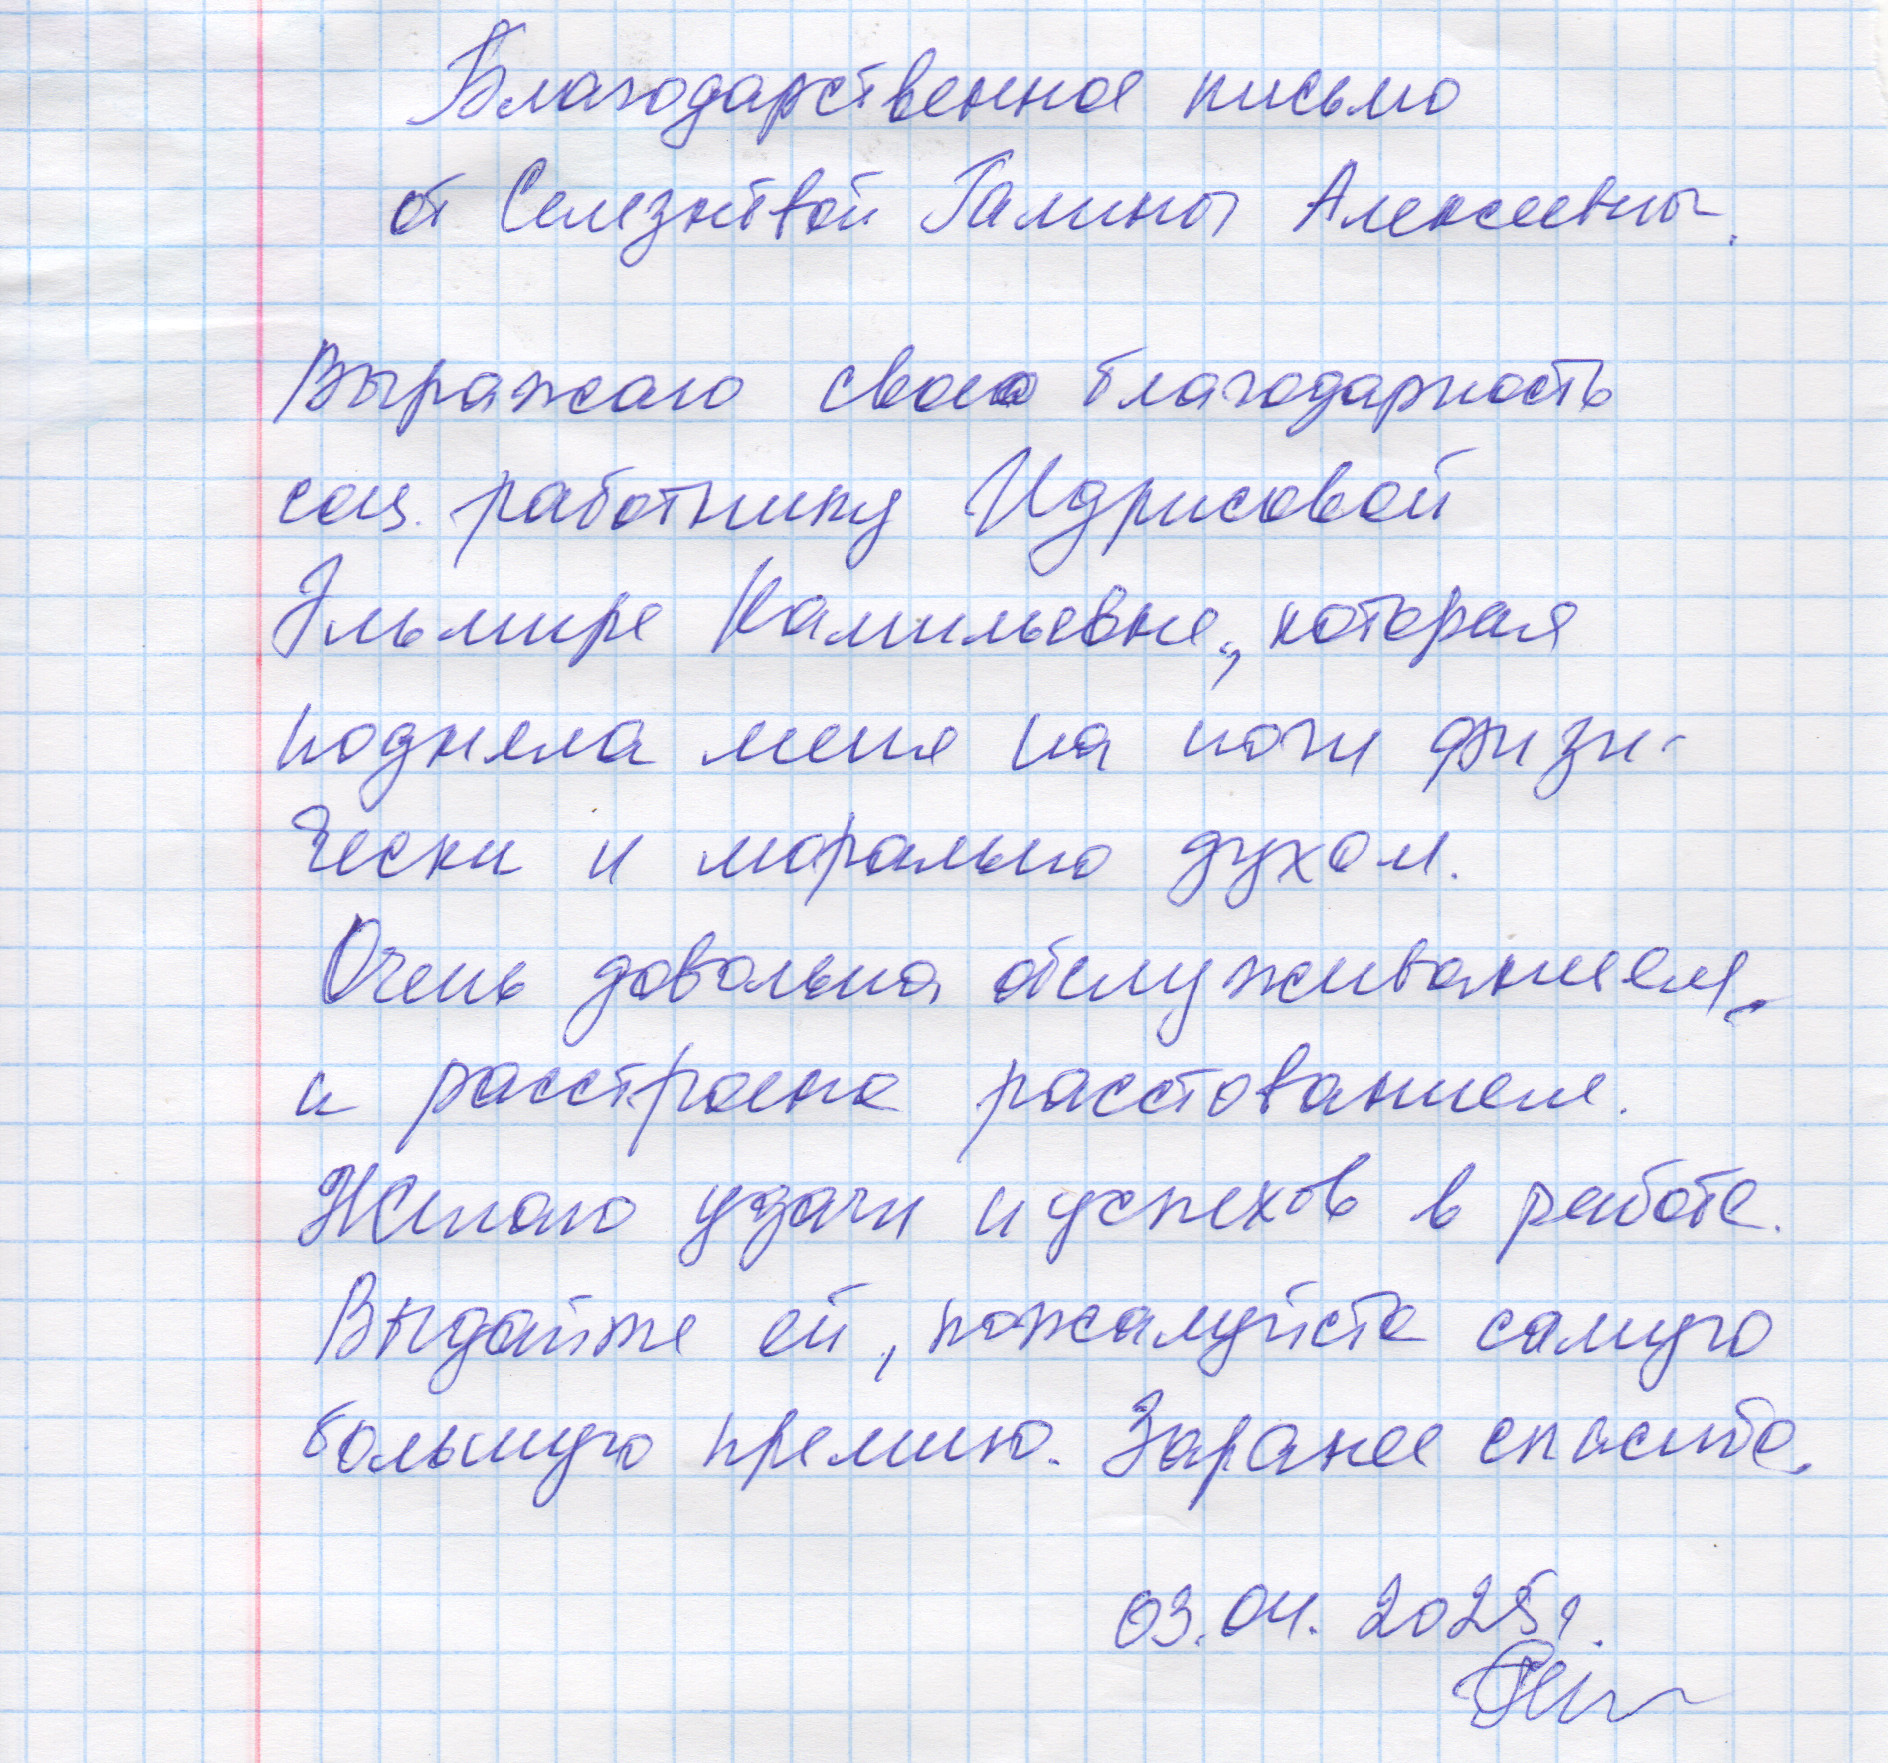 Благодарственное письмо
от Селезнёвой Галины Алексеевны.
Выражаю свою благодарность
соц. работнику Идрисовой
Эльмире Камильевне, которая
подняла меня на ноги физи-
чески и морально духом.
Очень довольна обслуживанием,
и расстроена расстованием.
Желаю удачи и успехов в работе.
Выдайте ей, пожалуйста самую
большую премию. Заранее спасибо.
03.04.2025г.